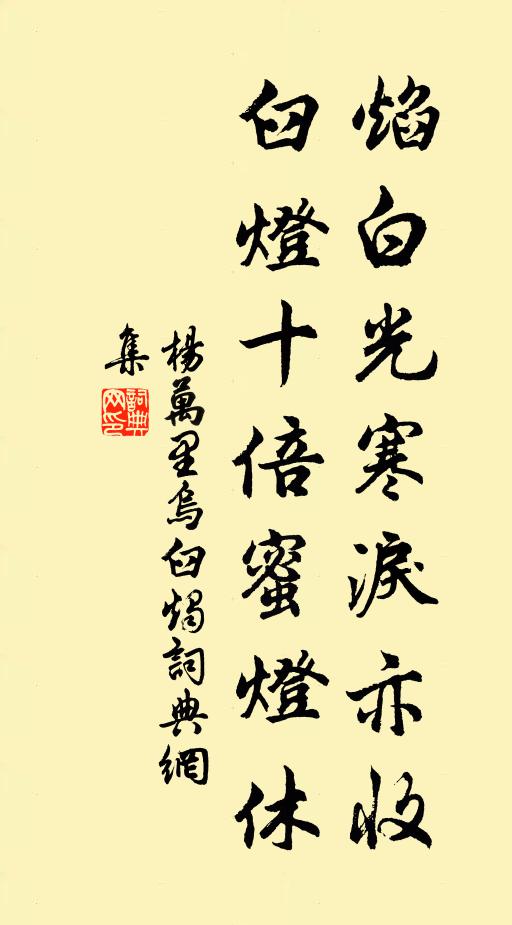 焰白光寒淚亦收
臼燈十倍蜜燈休
楊萬里烏臼燭詞典網
集
詞典
網印